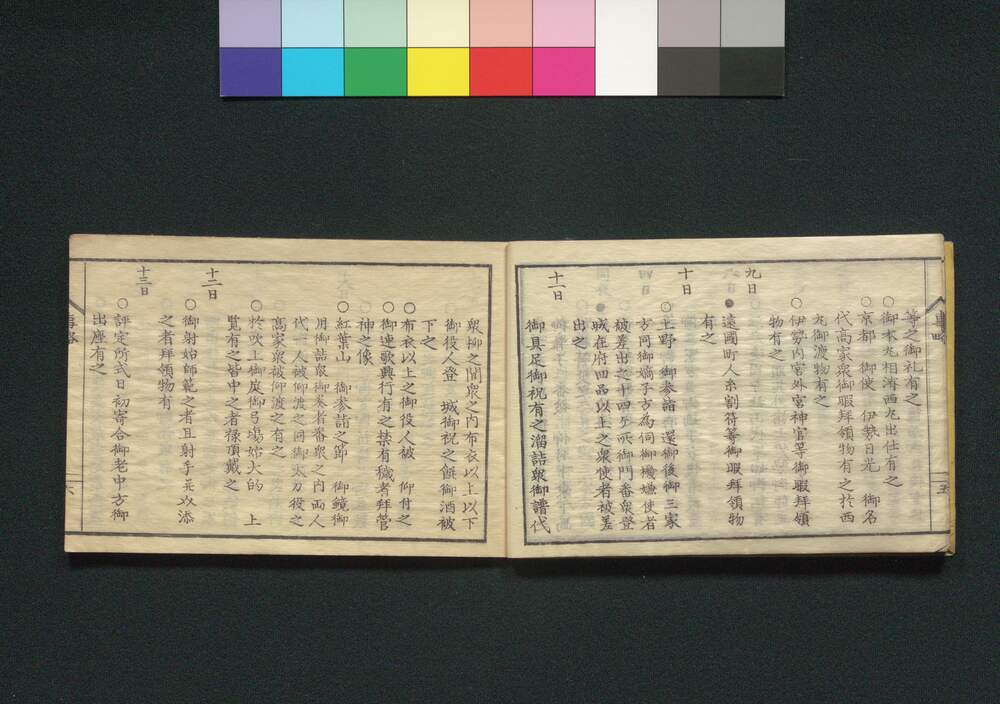 等之御礼有之
○御本丸相済西丸出仕有之
○京都 御使 伊勢日光 御名
代高家衆御暇拜領物有之於西
丸御渡物有之
○伊勢内宮外宮神官等御暇拜領
物有之
九日
●遠國町人糸割符等御暇拜領物
有之
十日
○上野 御参詣 還御後御三家
方同御嫡子方為伺御機嫌使者
被差出之十四ヶ所御門番衆登
城在府四品以上之衆使者被差
出之
十一日
御具足御祝有之溜詰衆御譜代
衆柳之間衆之内布衣以上以下
御役人登 城御祝之餅御酒被
下之
○布衣以上之御役人被 仰付之
○御連歌興行有之禁有穢者拜管
神之像
○紅葉山 御参詣之節 御鏡御
用御詰衆御奏者番衆之内両人
代一人被仰渡之同御太刀役之
高家衆被仰渡之有之
○於吹上御庭御弓場始大的 上
覧有之皆中之者禄頂戴之
十二日
○御射始師範之者且射手矢以添
之者拜領物有
十三日
○評定所式日初寄合御老中方御
出座有之
五
六